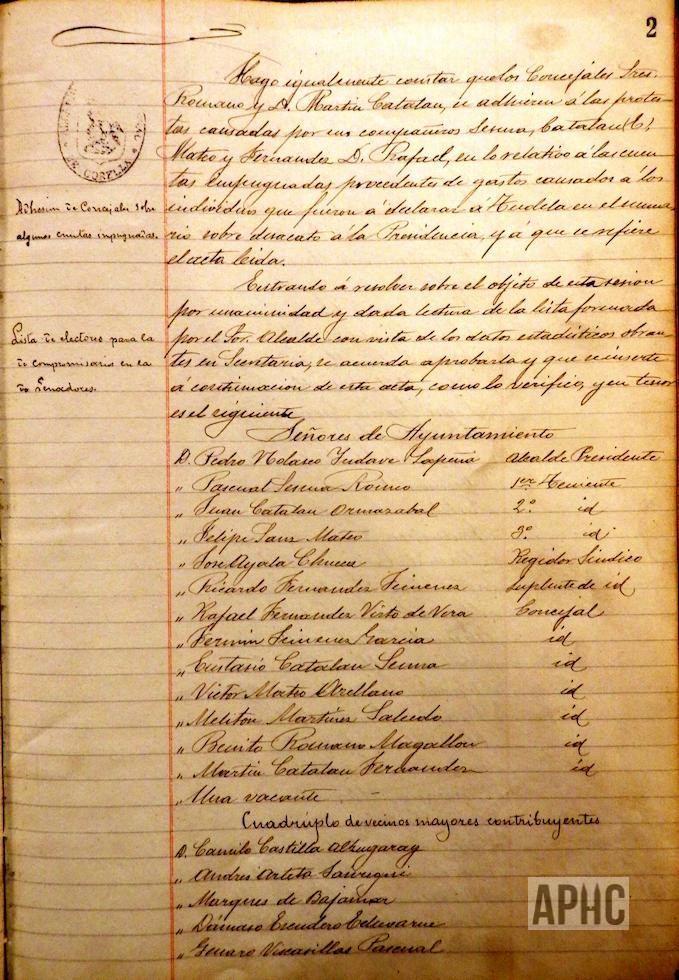 2
Hago igualmente constar que los Concejales Sres.
Romano y D. Martin Catalan, se adhieren á las protes-
tas causadas por sus compañeros Sesma, Catalan (E),
Mateo y Fernandez D. Rafael, en lo relativo á las cuen-
tas impugnadas procedentes de gastos causados á los
individuos que fueron á declarar á Tudela en el suma-
rio sobre desacato á la Presidencia, y á que se refiere
el acta leida.
Adhesion de Concejales sobre
algunas cuentas impugnadas.
Entrando á resolver sobre el objeto de esta sesion
por unanimidad y dada lectura de la lista formada
por el Sor. Alcalde con vista de los datos estadisticos obran-
tes en Secretaria, se acuerda aprobarla y que se inserte
á continuacion de esta acta, como lo verifico, y su tenor
es el siguiente
Lista de electores para la
de compromisarios en la
de Senadores.
Señores de Ayuntamiento
D. Pedro Nolasco Yudave Lapeña Alcalde Presidente
„ Pascual Sesma Romeo 1er Teniente
„ Juan Catalan Ormazabal 2.º id
„ Felipe Sanz Mateo 3.º id
„ Jose Ayala Chueca Regidor Sindico
„ Ricardo Fernandez Jimenez Suplente de id
„ Rafael Fernandez Virto de Vera Concejal
„ Fermin Jimenez Garcia id
„ Eustasio Catalan Sesma id
„ Victor Mateo Arellano id
„ Meliton Martinez Salcedo id
„ Benito Romano Magallon id
„ Martin Catalan Fernandez id
„ Una vacante
Cuadrúplo de vecinos mayores contribuyentes
D. Camilo Castilla Alzugaray
„ Andres Arteta
„ Marques de Bajamar
„ Dámaso Escudero Echevarne
„ Genaro Viscasillas Pascual
APHC